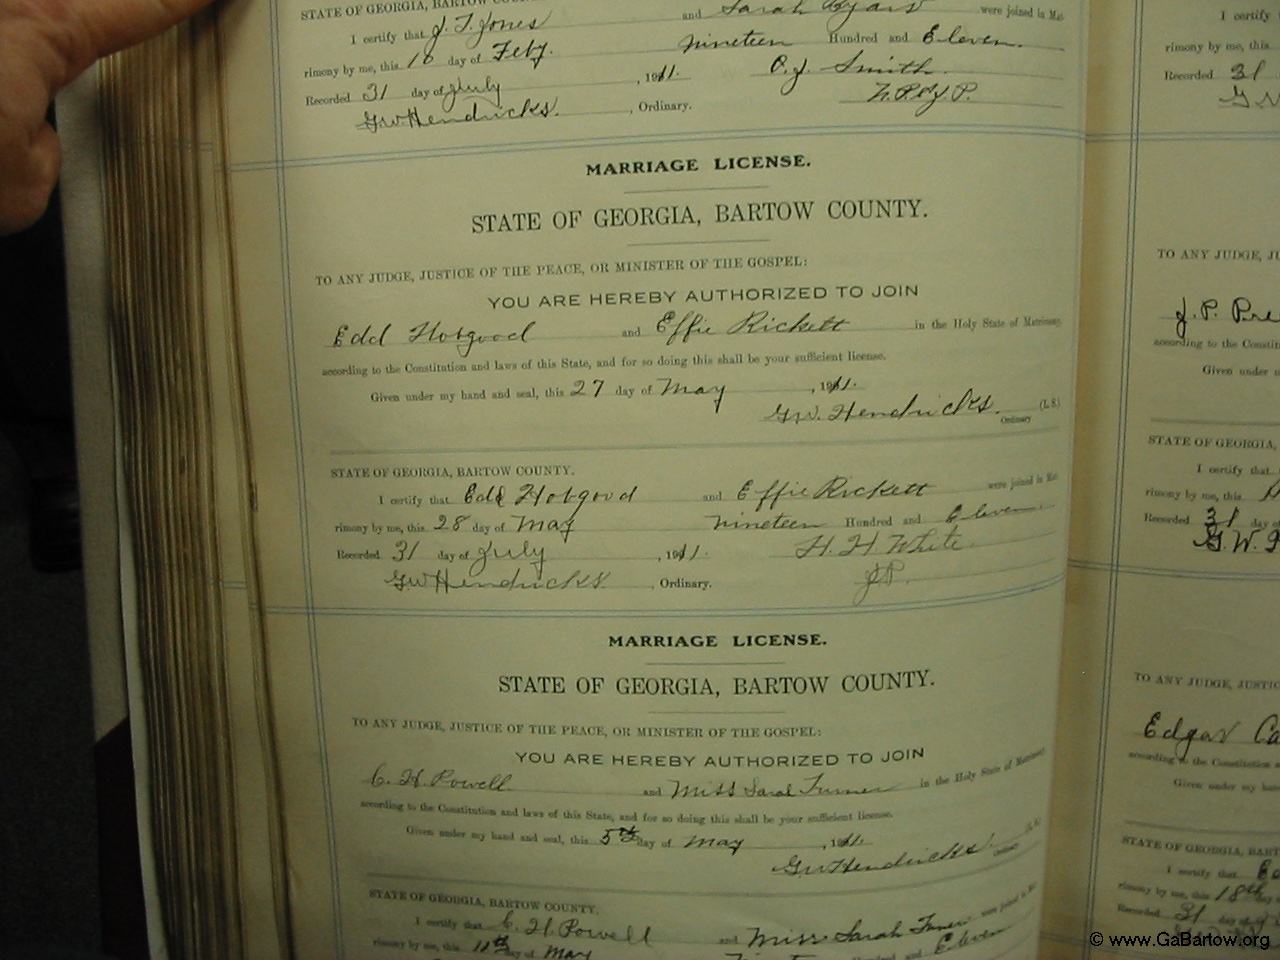 STATE OF GEORGIA, BARTOW
I certify that J. T. Jones and Sarah Byars were joined in Mat-
rimony by me, this 18 day of Feby. nineteen Hundred and Eleven.
Recorded 31 day of July, 1911. Smith
G W Hendricks, Ordinary.
MARRIAGE LICENSE.
STATE OF GEORGIA, BARTOW COUNTY.
TO ANY JUDGE, JUSTICE OF THE PEACE, OR MINISTER OF THE GOSPEL:
YOU ARE HEREBY AUTHORIZED TO JOIN
Edd Hobgood and Effie Rickett in the Holy State of Matrimony,
according to the Constitution and laws of this State, and for so doing this shall be your sufficient license.
Given under my hand and seal, this 27 day of May, 1911.
G.W. Hendricks. (L.S.)
Ordinary
STATE OF GEORGIA, BARTOW COUNTY.
I certify that Edd Hobgood and Effie Rickett were joined in Mat-
rimony by me, this 28 day of May nineteen Hundred and Eleven.
Recorded 31 day of July, 1911. H. H White.
G W Hendricks, Ordinary. J P.
MARRIAGE LICENSE.
STATE OF GEORGIA, BARTOW COUNTY.
TO ANY JUDGE, JUSTICE OF THE PEACE, OR MINISTER OF THE GOSPEL:
YOU ARE HEREBY AUTHORIZED TO JOIN
C. H. Powell and Miss Sarah Turner in the Holy State of Matrimony,
according to the Constitution and laws of this State, and for so doing this shall be your sufficient license.
Given under my hand and seal, this 5th day of May, 1911.
G W Hendricks. (L.S.)
STATE OF GEORGIA, BARTOW COUNTY.
I certify that C. H. Powell and Miss Sarah Turner were joined in Mat-
rimony by me, this 11th day of May Eleven
I certify
rimony by me, this
Recorded 31
TO ANY JUDGE, JU
J. P. Pre
according to the Constitu
Given under
STATE OF GEORGIA,
I certify that
rimony by me, this
Recorded 31 day o
G. W.
TO ANY JUDGE, JUSTIC
Edgar Ca
according to the Constitution a
Given under my han
STATE OF GEORGIA, BART
I certify that
rimony by me, this 18th day
Recorded 31 day of
© www.GaBartow.org